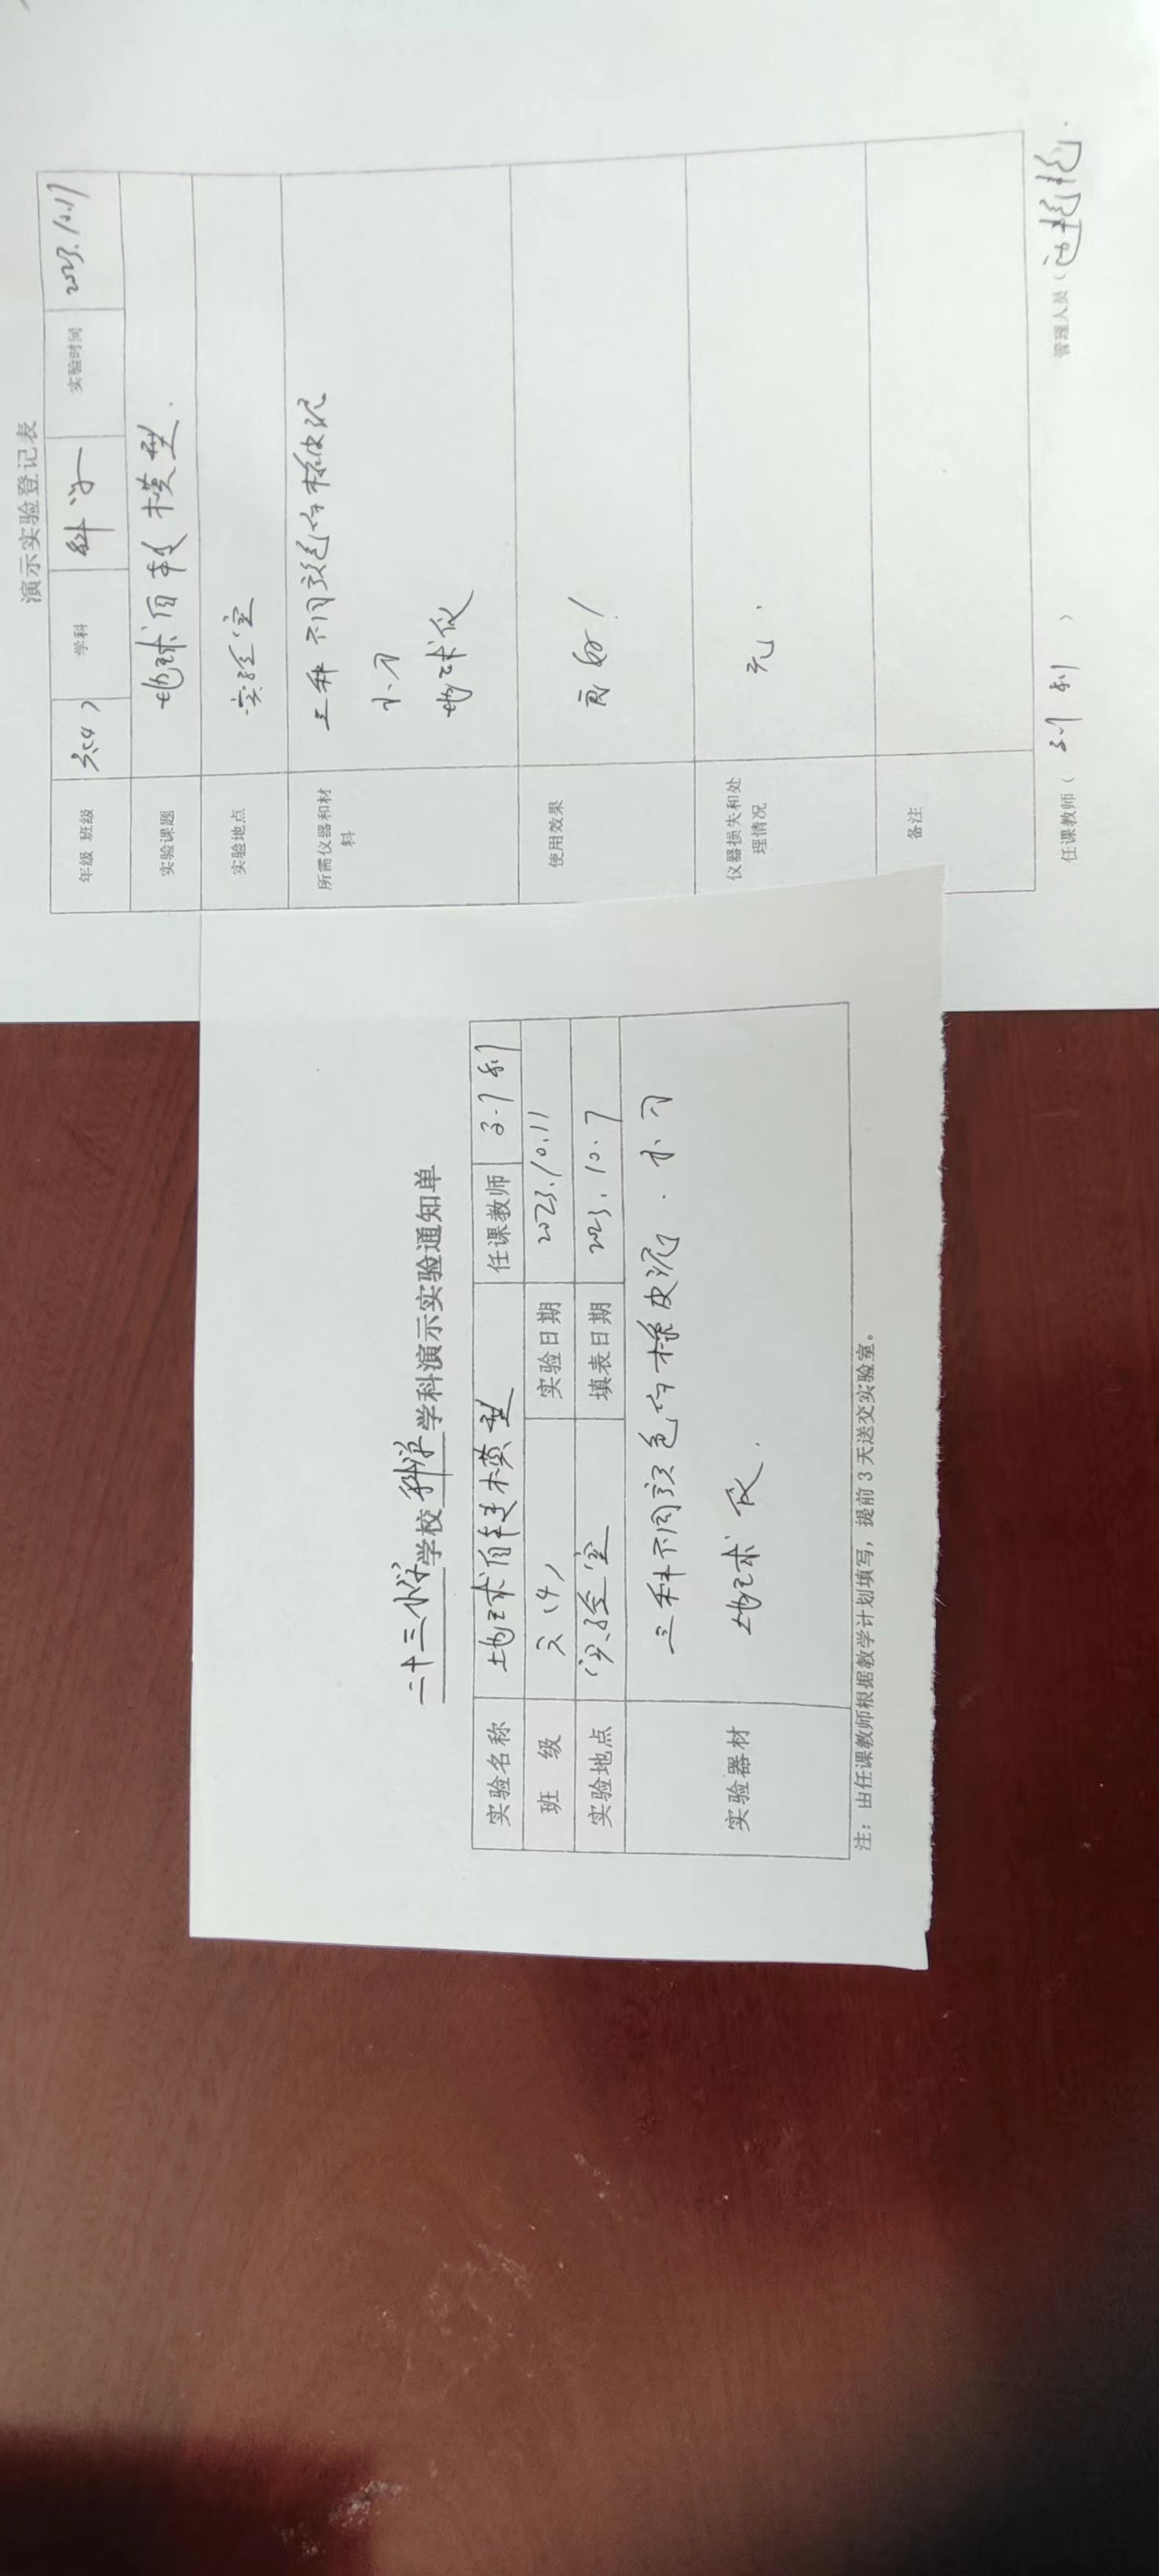 二十三小学学校科学学科演示实验通知单
实验名称 地球内部模型 任课教师
班 级 六(4) 实验日期 2023.10.11
实验地点 实验室 填表日期 2023.10.7
实验器材 三种不同颜色的橡皮泥、小刀
地球仪.
注:由任课教师根据教学计划填写,提前3天送交实验室。
演示实验登记表
年级 班级 六(4) 学科 科学 实验时间 2023.10.11
实验课题 地球内部模型.
实验地点 实验室
所需仪器和材料 三种不同颜色的橡皮泥
小刀
地球仪
使用效果 良好!
仪器损失和处理情况 无.
备注
任课教师( ) 管理人员(